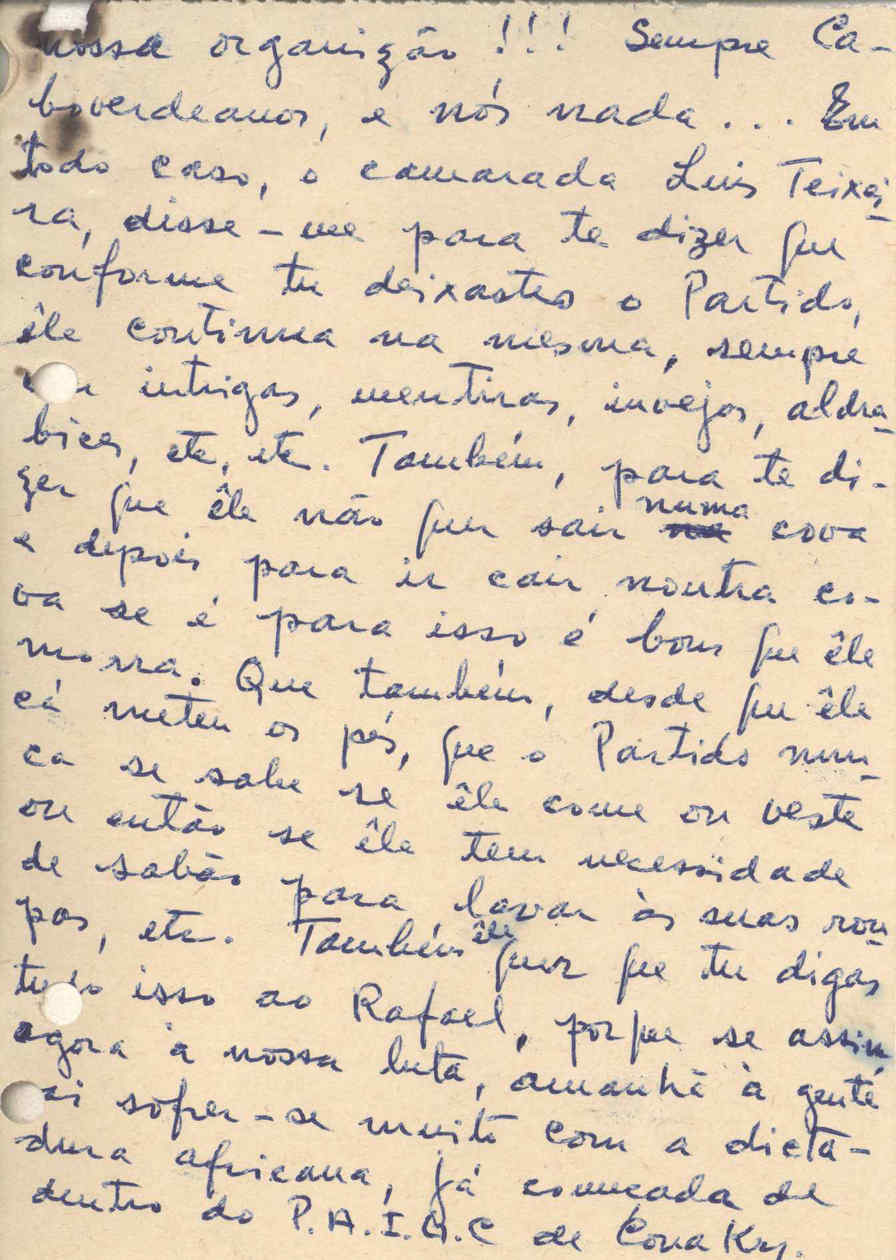 nossa organizão !!! Sempre Ca-
boverdeanos, e nós nada ... Em
todo caso, o camarada Luis Teixei-
ra, disse-me para te dizer que
conforme tu deixastes o Partido,
êle continua na mesma, sempre
intrigas, mentiras, invejas, aldra-
bices, etc, etc. Também, para te di-
zer que êle não quer sair numa cova
e depois para ir cair noutra co-
va se é para isso é bom que êle
morra. Que também, desde que êle
cá meteu os pés, que o Partido nun-
ca se sabe se êle come ou veste
ou então se êle tem necessidade
de sabão para lavar às suas rou-
pas, etc. Também êle quer que tu digas
tudo isso ao Rafael, porque se assim
agora à nossa luta, amanhã à gente
vai sofrer-se muito com a dicta-
dura africana, já começada de
dentro do P.A.I.G.C de Cona Kry.